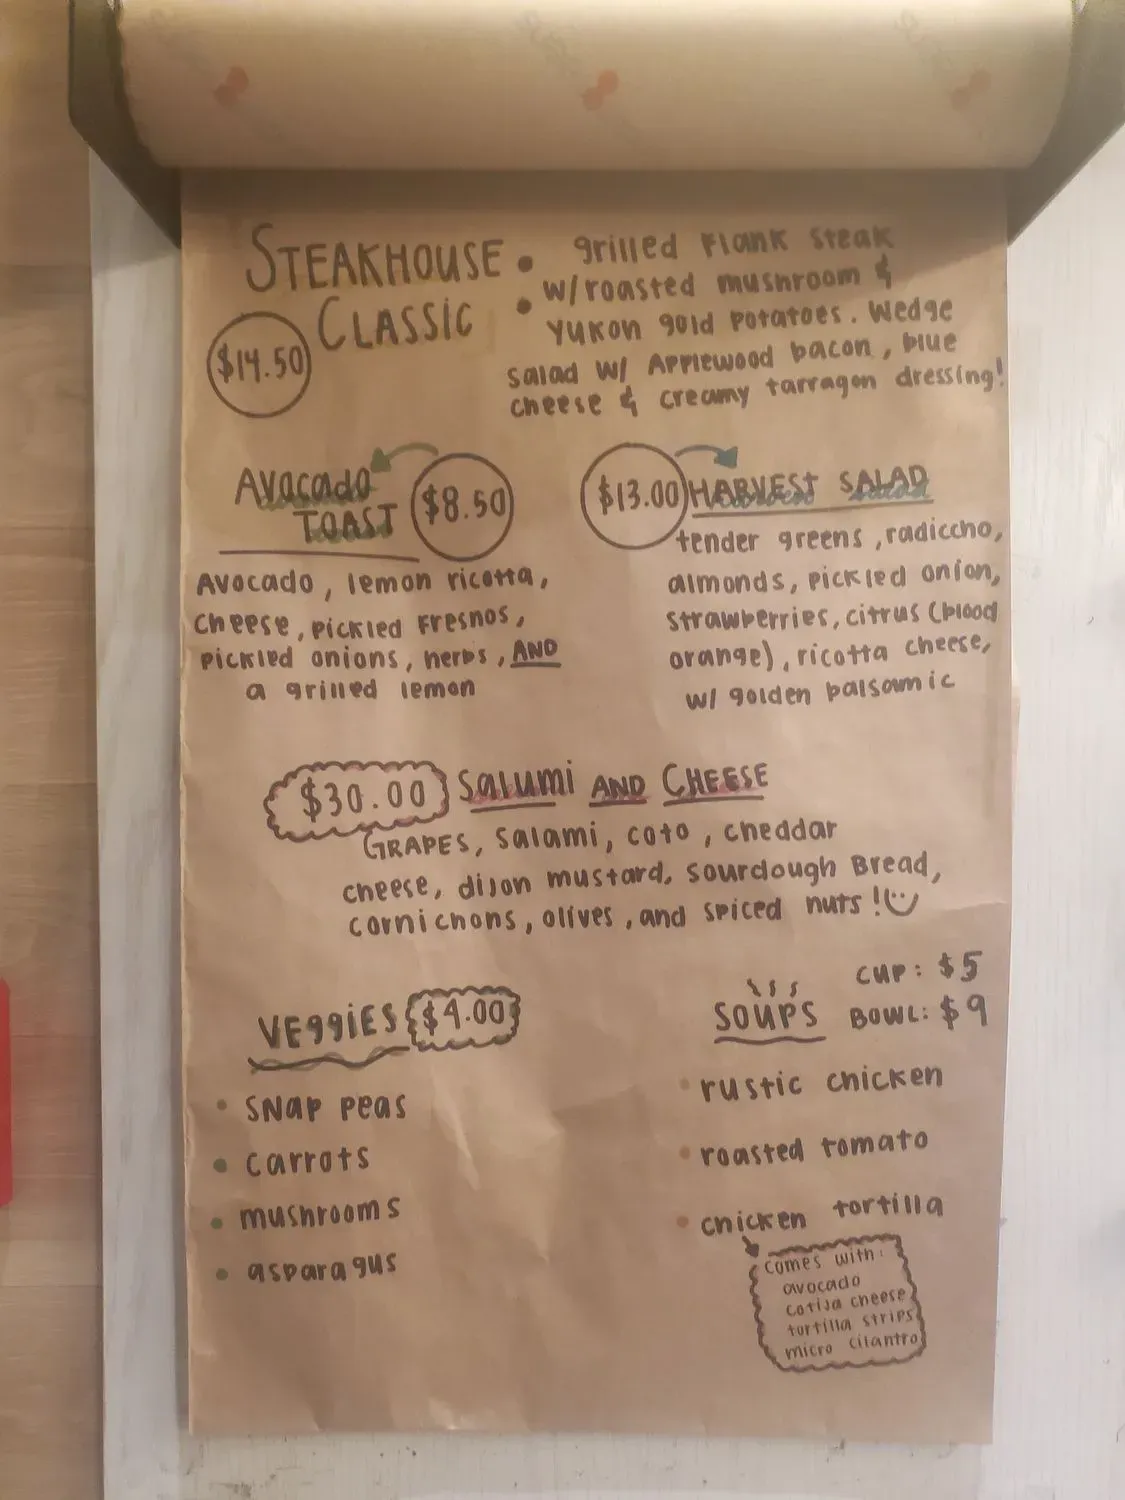 STEAKHOUSE
CLASSIC
$14.50
• grilled Flank Steak
• w/roasted mushroom &
Yukon gold Potatoes. Wedge
salad w/ Applewood bacon, blue
cheese & creamy tarragon dressing!
Avocado
TOAST
$8.50
Avocado, lemon ricotta,
cheese, pickled Fresnos,
pickled onions, herbs, AND
a grilled lemon
$13.00
HARVEST SALAD
tender greens, radiccho,
almonds, pickled onion,
strawberries, citrus (blood
orange), ricotta cheese,
w/ golden balsamic
$30.00 Salumi AND CHEESE
GRAPES, salami, coto, cheddar
cheese, dijon mustard, sourdough Bread,
cornichons, olives, and spiced nuts!
VEggiES $4.00
• SNAP PEAS
• carrots
• mushrooms
• asparagus
SOUPS
CUP: $5
BOWL: $9
• rustic chicken
• roasted tomato
• chicken tortilla
comes with:
avocado
cotija cheese
tortilla strips
micro cilantro